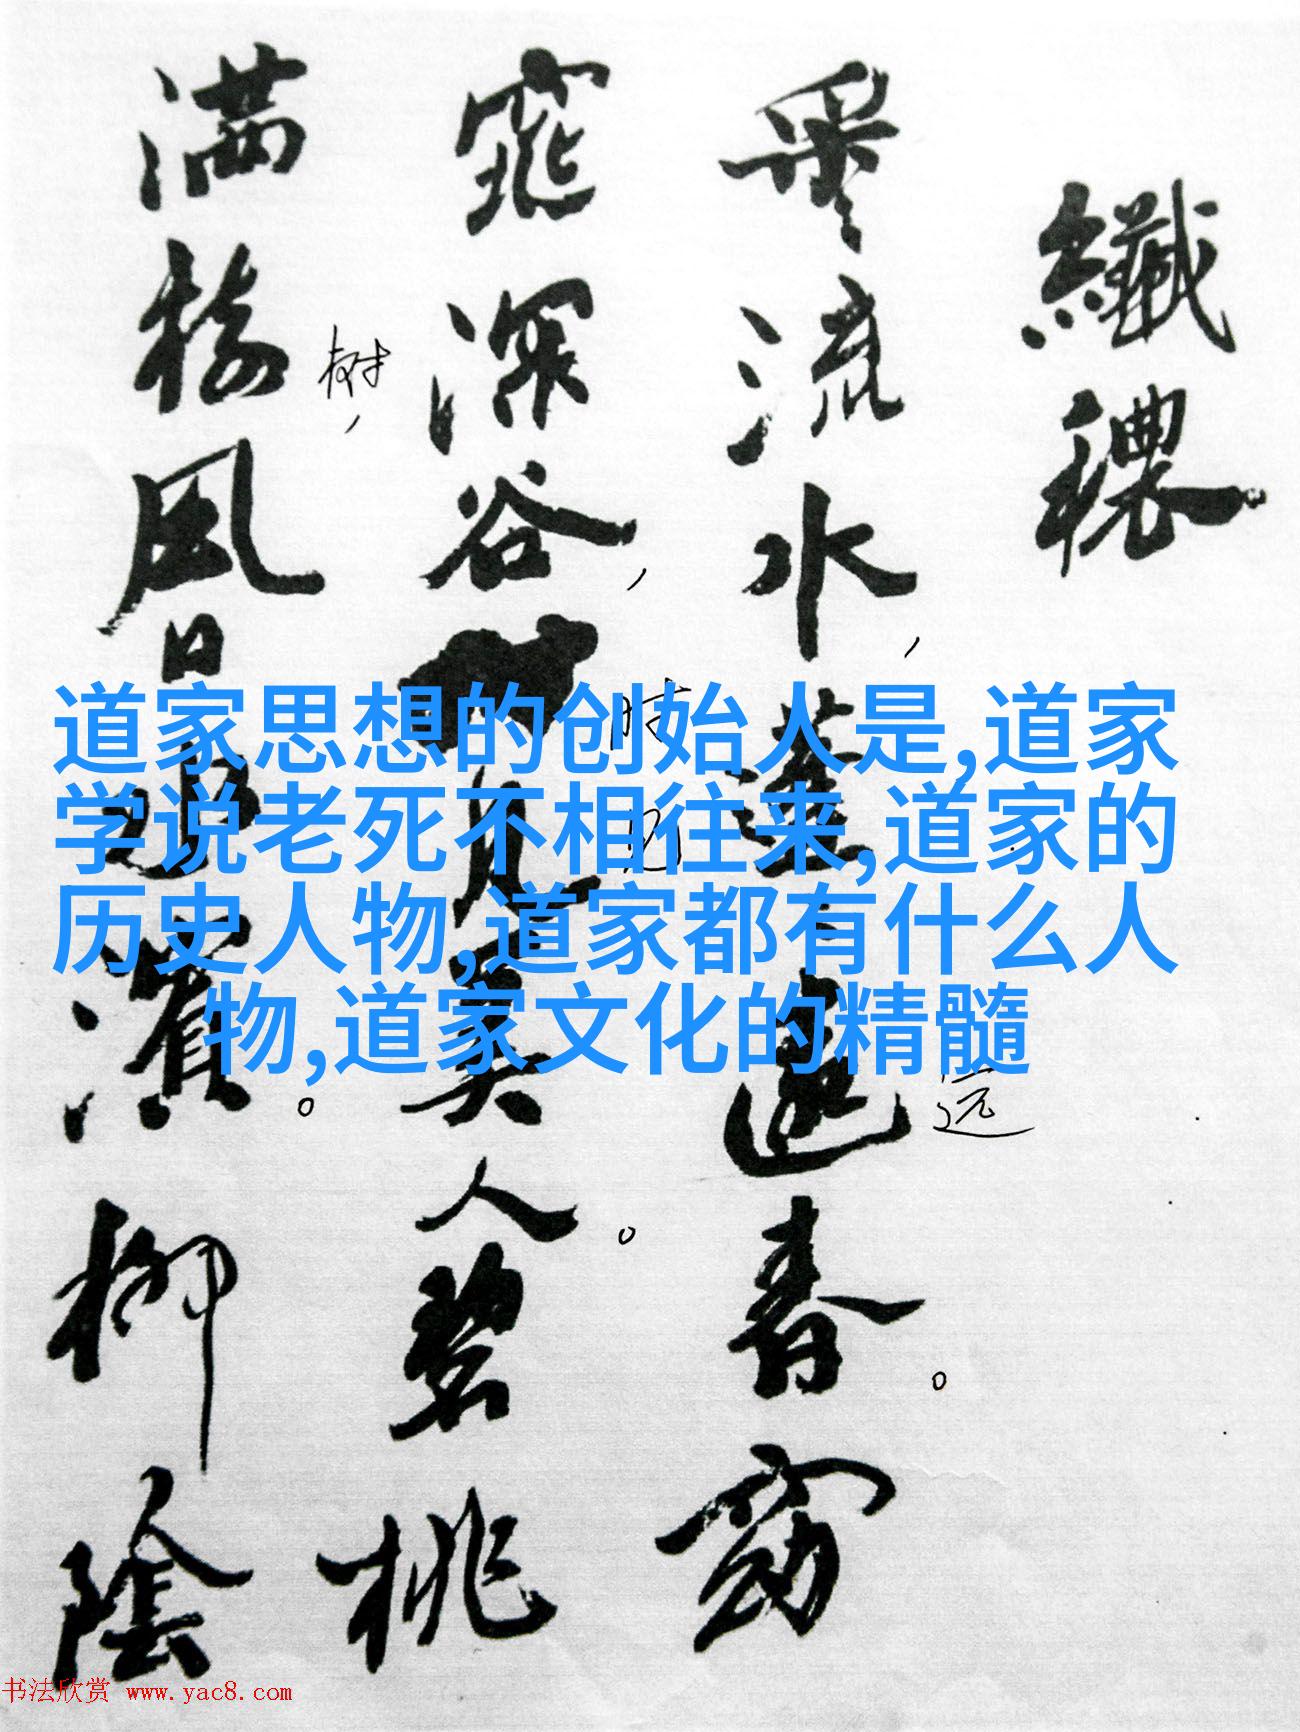 纖穠
采〻流水，蓬〻遠春。窈
窕深谷，見美人。碧桃
满樹，风日濱。柳陰
树
时
见
远
道家思想的创始人是,道家
学说老死不相往来,道家的
历史人物,道家都有什么人
物,道家文化的精髓
书法欣赏 www.yac8.com